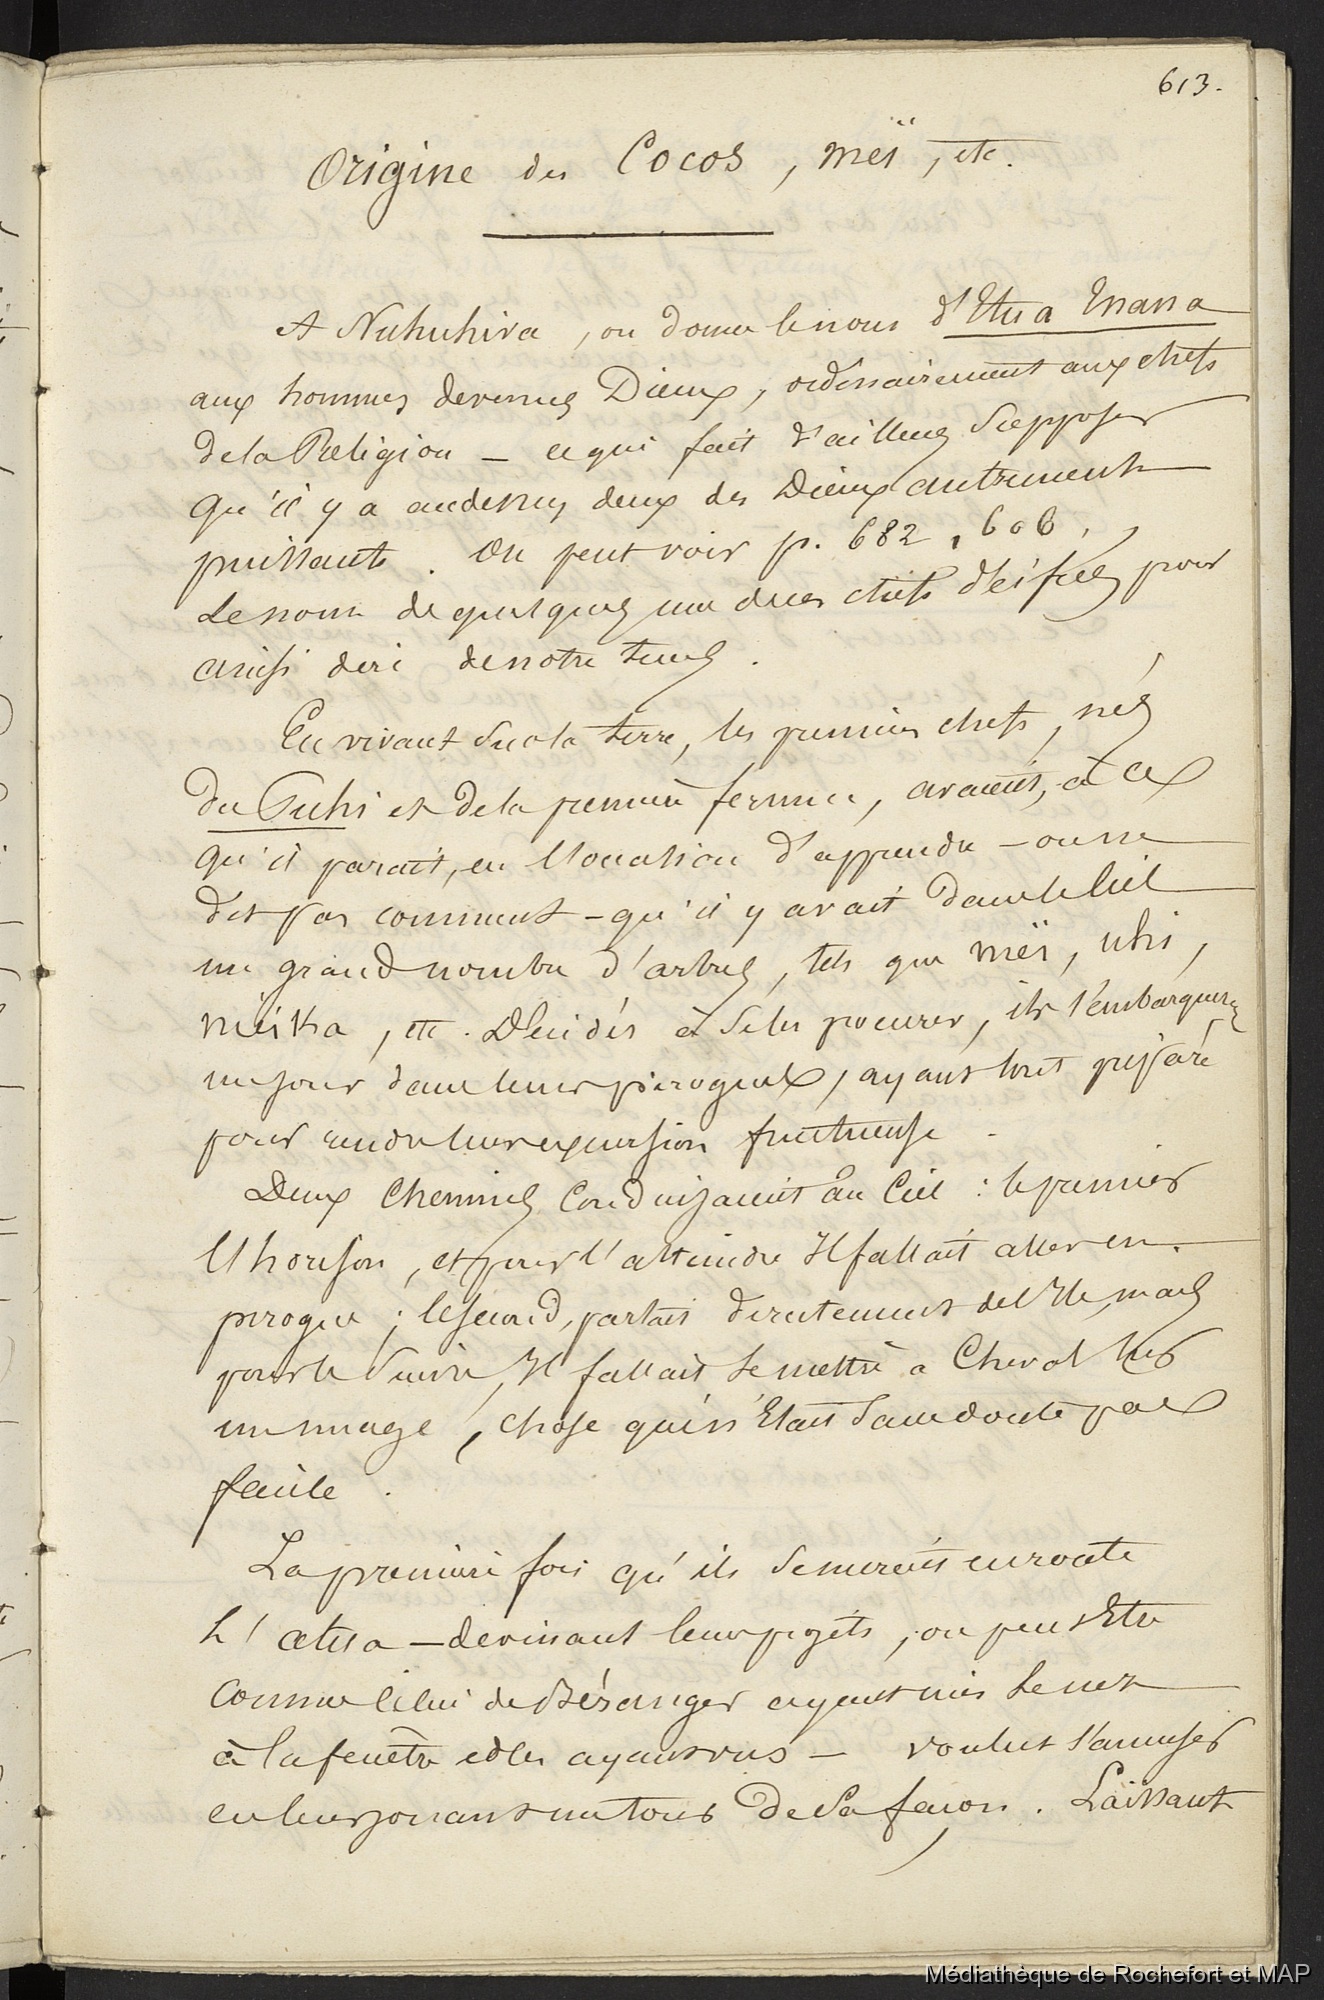 613.
Origine des Cocos, meï, etc.
A Nukuhiva, on donne le nom d'Etua Enana
aux hommes devenus Dieux, ordinairement aux chefs
de la Religion – ce qui fait d'ailleurs supposer
qu'il y a au dessus d'eux des Dieux autrement
puissants. On peut voir p. 682, 606,
le nom de quelques uns de ces chefs déifiés pour
ainsi dire de notre temps.
En vivant sur la terre, les premiers chefs, nés
du Puhi et de la première femme, avaient, à ce
qu'il paraît, eu l'occasion d'apprendre – on ne
dit pas comment – qu'il y avait dans le Ciel
un grand nombre d'arbres, tels que meï, uhi,
meika, etc. Décidés à se les procurer, ils s'embarquèrent
un jour dans leurs pirogues, ayant tout préparé
pour rendre leur excursion fructueuse.
Deux chemins conduisaient au Ciel : le premier
l'horison, et pour l'atteindre il fallait aller en
pirogue ; le second, partait directement de l'Ile, mais
pour le suivre, il fallait se mettre à cheval sur
un nuage, chose qui n'était sans doute pas
facile.
La première fois qu'ils se mirent en route
L'atua – devinant leurs projets, ou peut Etre
comme celui de Béranger ayant mis le nez
à la fenêtre et les ayant vus – voulut s'amuser
en leur jouant un tour de sa façon. Laissant
Médiathèque de Rochefort et MAP